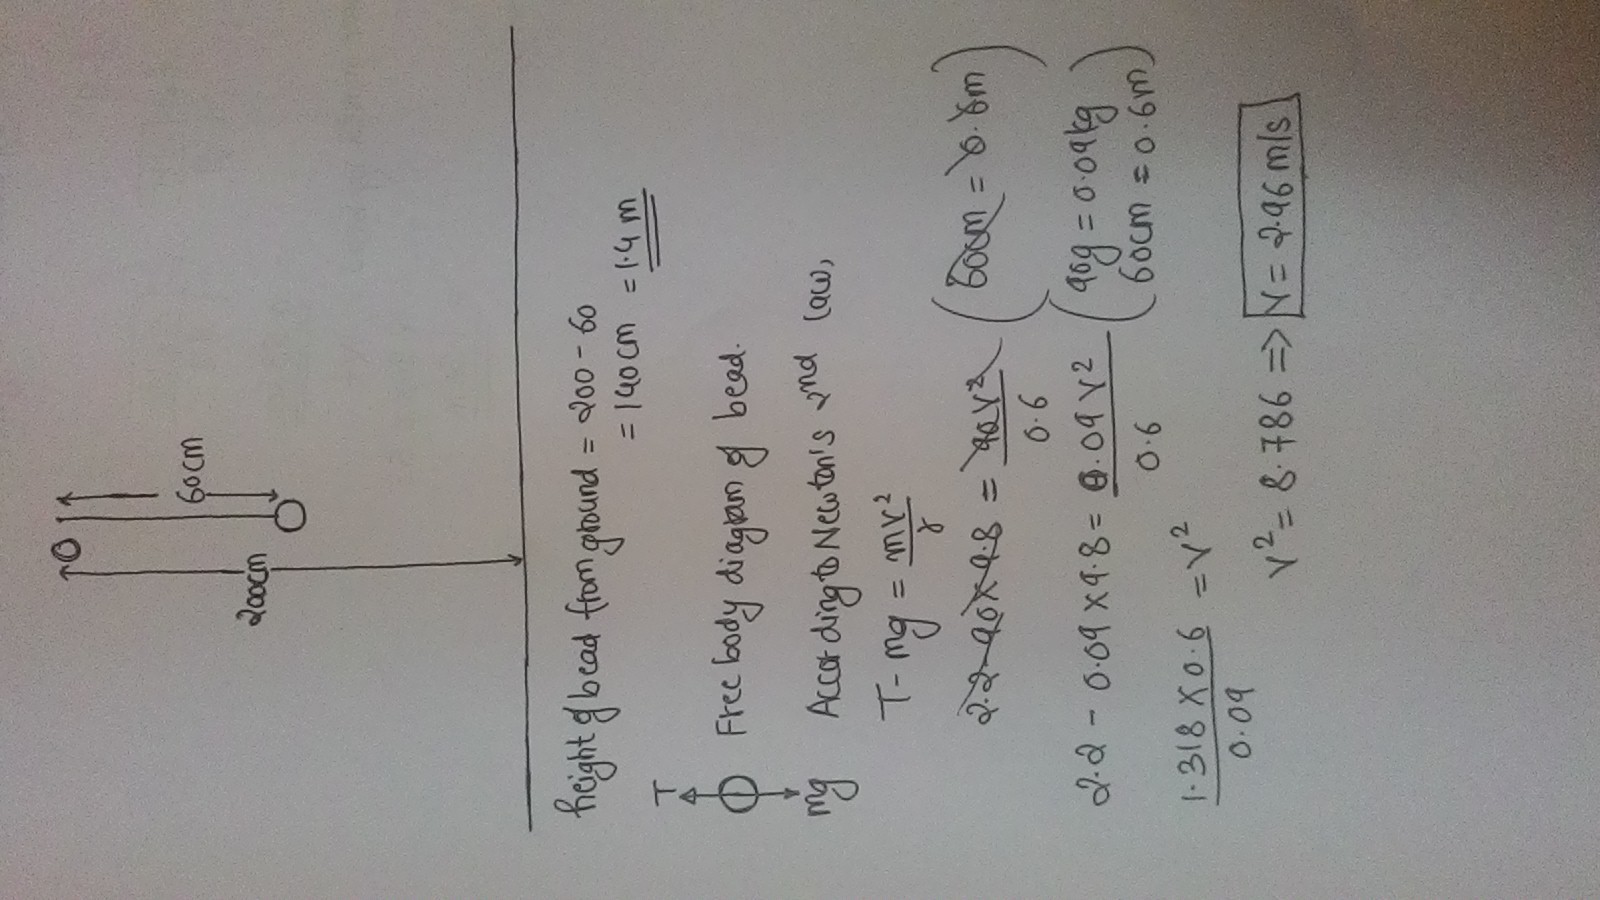 O
60cm
200cm
height of bead from ground = 200 - 60
= 140cm = 1.4 m
T
mg
Free body diagram of bead.
According to Newton's 2nd law,
T - mg = mv²/r
2.2 - 90 x 9.8 = 90v²/0.6 (60cm = 0.6m)
2.2 - 0.09 x 9.8 = 0.09v²/0.6 (90g = 0.09kg
60cm = 0.6m)
1.318 x 0.6/0.09 = v²
v² = 8.786 => V = 2.96 m/s